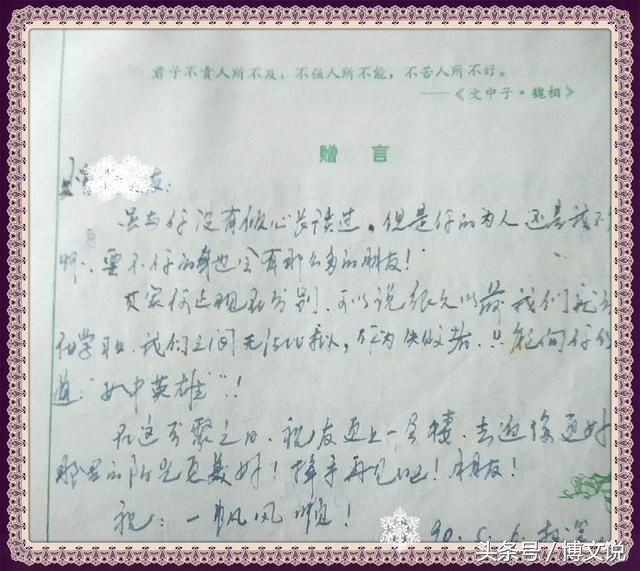 君子不责人所不及，不强人所不能，不苦人所不好。
——《文中子·魏相》
赠 言
友：
虽与你没有倾心长谈过，但是你的为人还是
啊，要不你的身边会有那么多的朋友！
其实何止现在分别，可以说很久以前我们就
化学班。我们之间无法比拟，作为失败者，只能向你
道"女中英雄"！
在这可聚之日，祝友更上一层楼，去追缘更好
那里的阳光更美好！挥手再见吧！朋友！
祝：一帆风顺！
90.5.6.
头条号／博文说